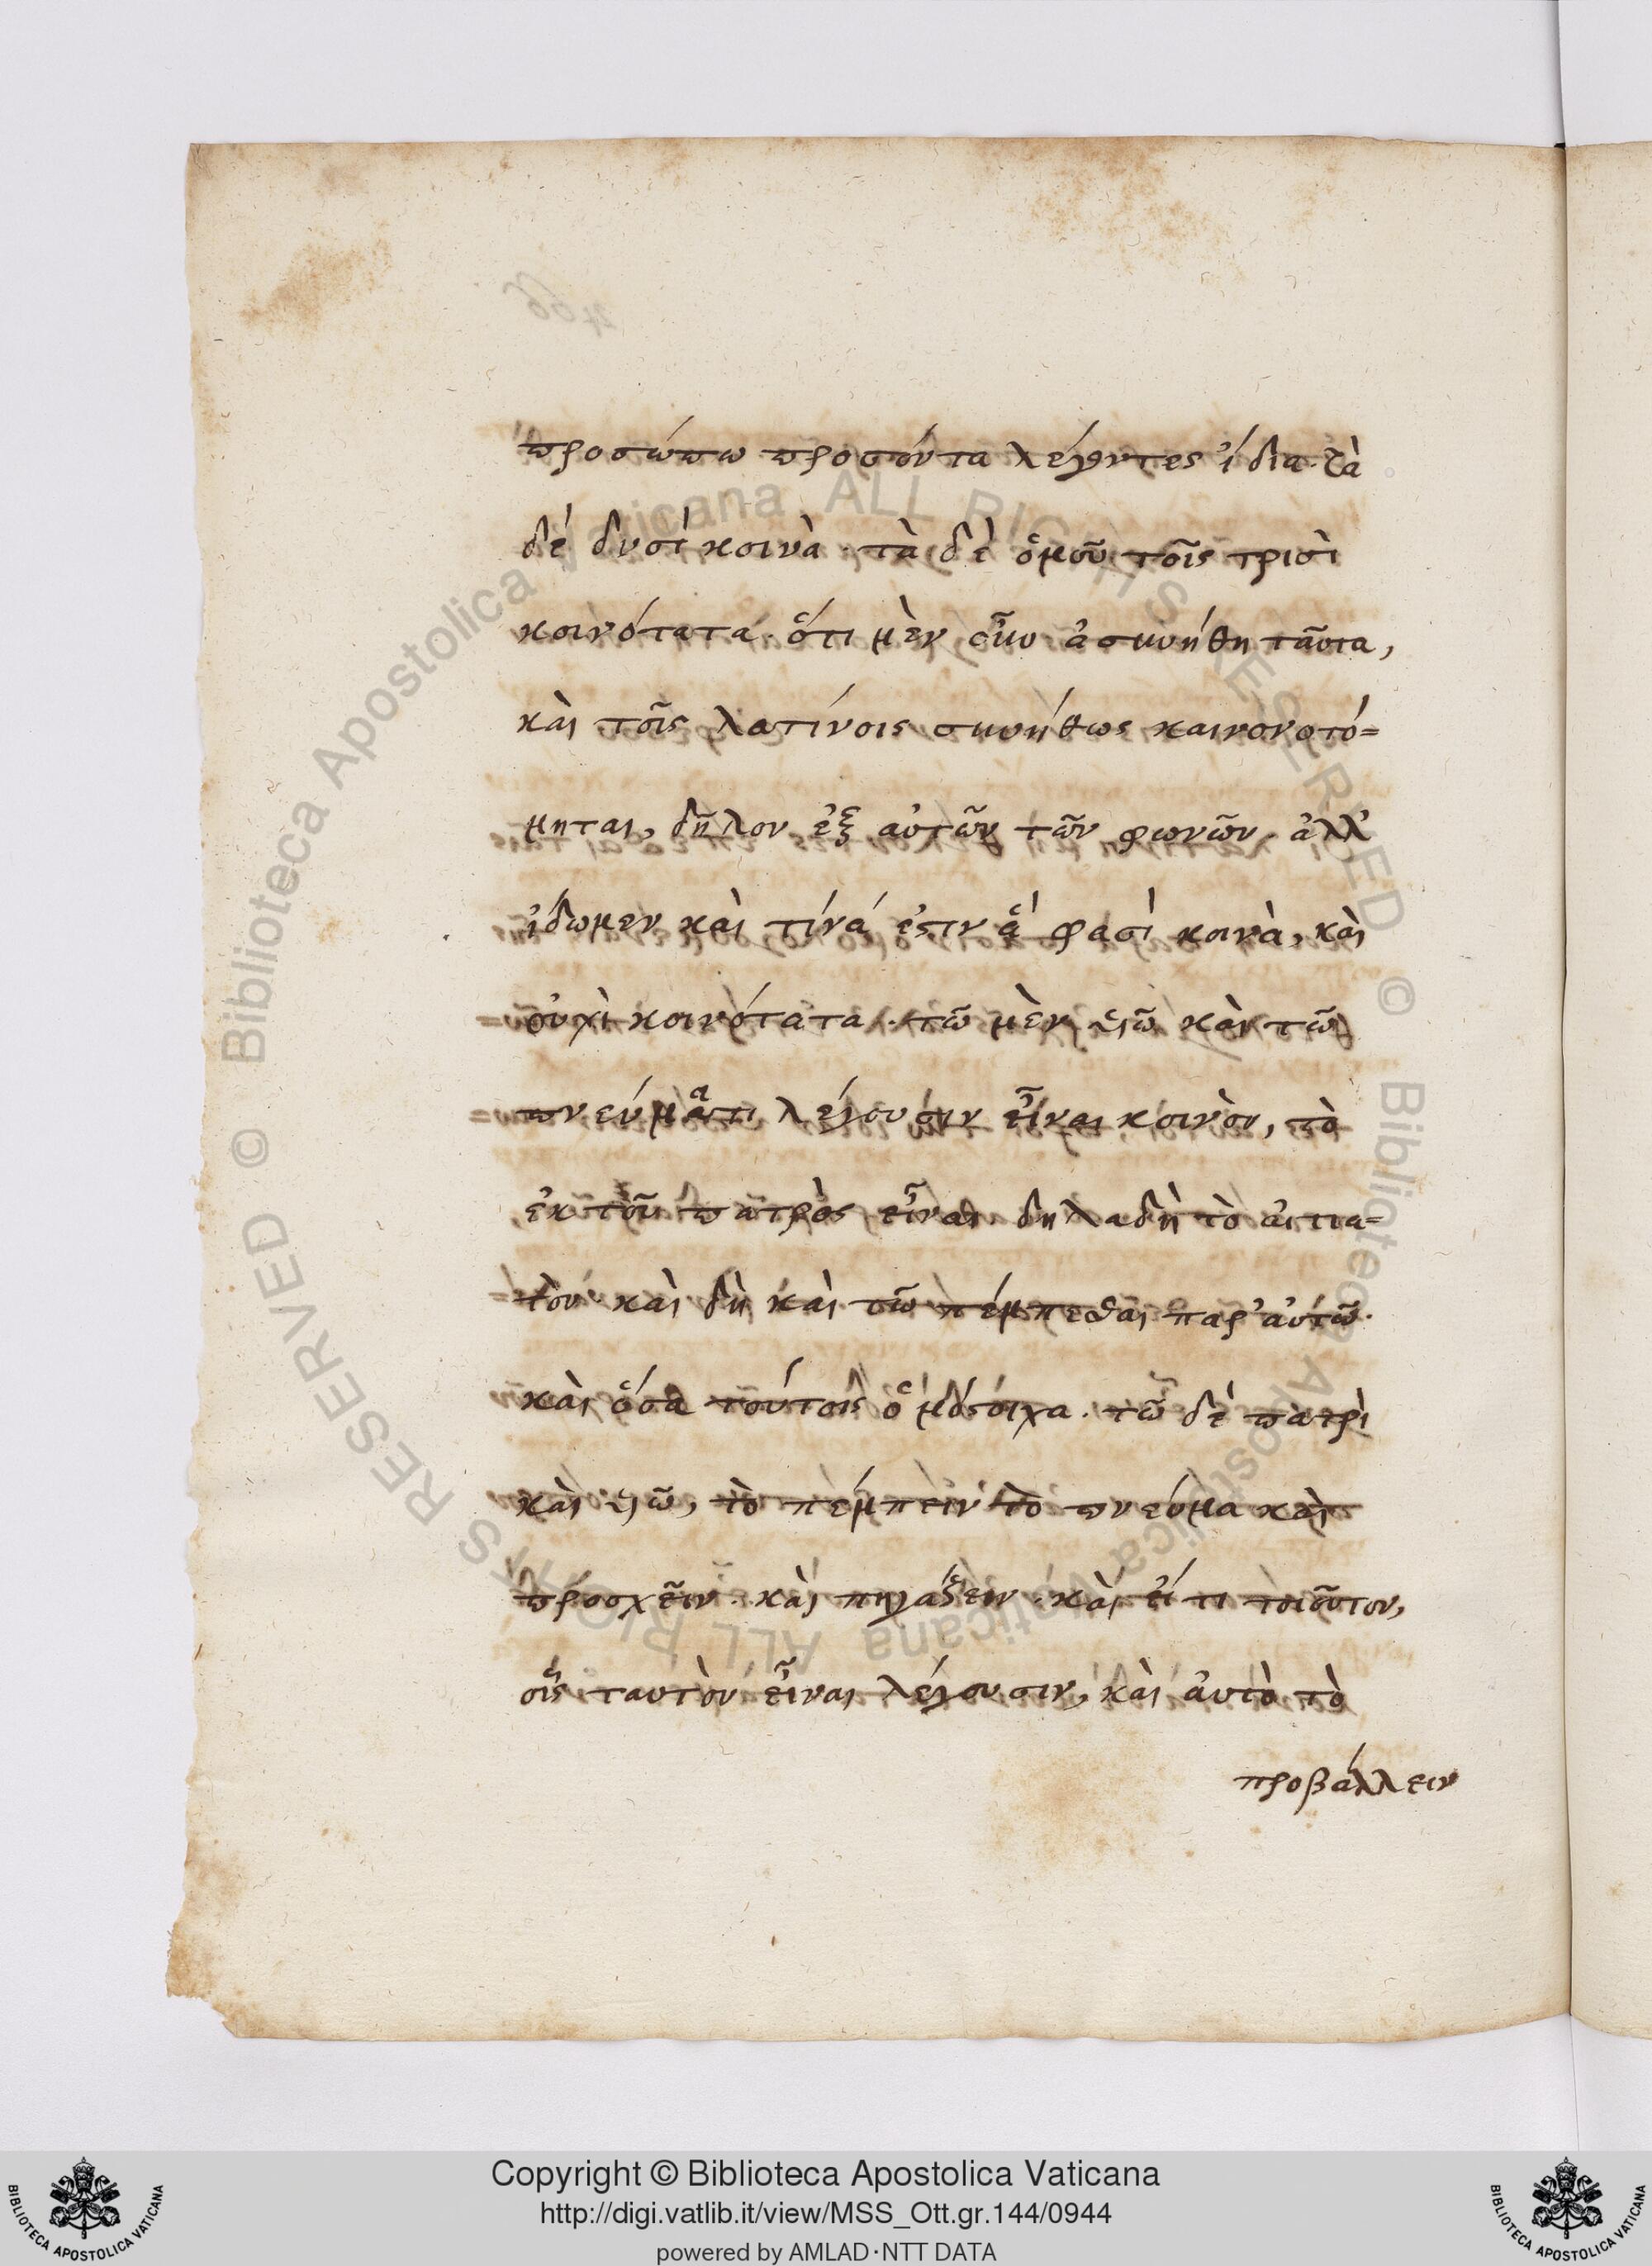 προσώπω προσόντα λέγοντες ἴδια. τὰ
δέ δυσί κοινὰ. τὰ δὲ ὁμοῦ τοῖς τρισὶ
κοινότατα. ὅτι μὲν οὖν ἀσυνήθη ταῦτα,
καὶ τοῖς λατίνοις συνήθως καινονοτό=
μηται, δῆλον ἐξ αὐτῶν τῶν φωνῶν. ἀλλ'
ἴδωμεν καὶ τίνά ἐστιν ἅ φασὶ κοινὰ, καὶ
οὐχὶ κοινότατα. τῶ μὲν υἱῶ καὶ τῶ
πνεύματι λέγουσιν εἶναι κοινὸν, τὸ
ἐκ τοῦ πατρὸς εἶναι δηλαδὴ τὸ αἰτια=
τὸν. καὶ δὴ καὶ τῶ πέμπεσθαι παρ' αὐτῶ.
καὶ ὅσα τούτοις ὁμόστοιχα. τῶ δὲ πατρὶ
καὶ υἱῶ, τὸ πέμπειν τὸ πνεύμα καὶ
προσχεῖν. καὶ πηγάζειν. καὶ εἴ τι τοιοῦτον,
οἷς ταυτὸν εἶναι λέγουσιν, καὶ αὐτὸ τὸ
προβάλλειν
© Biblioteca Apostolica Vaticana ALL RIGHTS RESERVED © Biblioteca Apostolica Vaticana ALL RIGHTS RESERVED
BIBLIOTECA APOSTOLICA VATICANA
Copyright © Biblioteca Apostolica Vaticana
http://digi.vatlib.it/view/MSS_Ott.gr.144/0944
powered by AMLAD·NTT DATA
BIBLIOTECA APOSTOLICA VATICANA